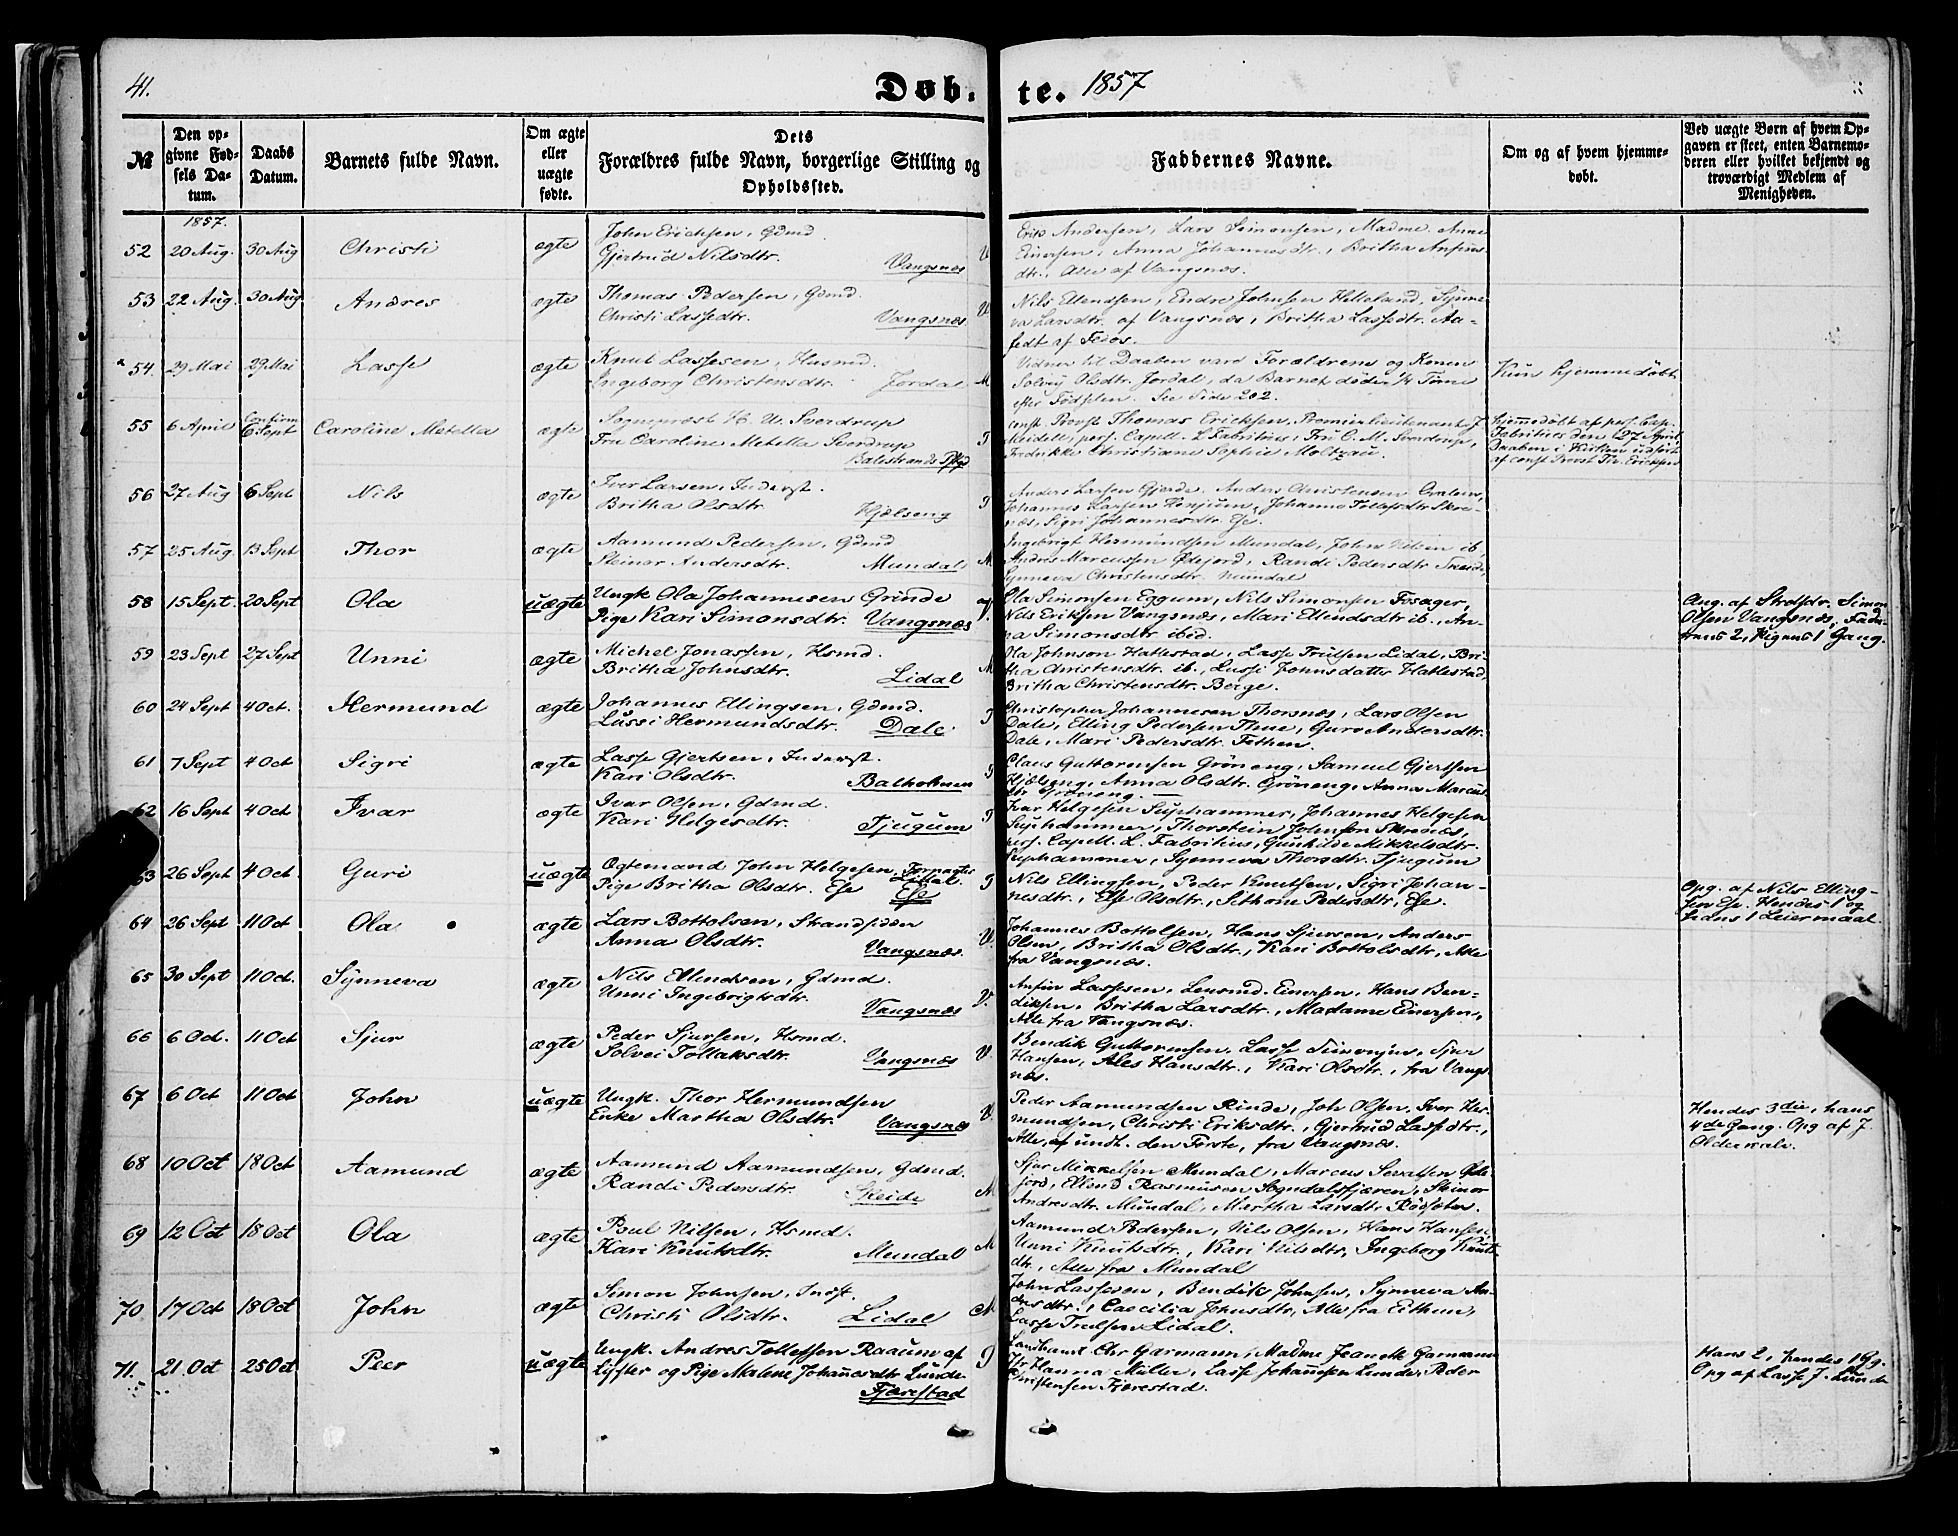 41.
Døb-
te. 1857
№
Den op-
givne Fød-
sels Da-
tum.
Daabs
Datum.
Barnets fulde Navn.
Om ægte
eller
uægte
fødte.
Dets
Forældres fulde Navn, borgerlige Stilling og
Opholdssted.
Faddernes Navne.
Om og af hvem hjemme-
døbt.
Ved uægte Børn af hvem Op-
gaven er skeet, enten Barnemo-
deren eller hvilket bekjendt og
troværdigt Medlem af
Menigheden.
1857.
52 20 Aug. 30 Aug Christi ægte
John Erichsen, Gdmd.
Gjertrud Nilsdtr. Vangsnæs V
Erik Andersen, Lars Simonsen, Madme. Anne
Einersen, Anna Johannesdtr., Britha Anfins-
dtr., Alle af Vangsnæs.
53 22 Aug. 30 Aug Andres ægte
Thomas Pedersen, Gdmd.
Christi Lassedtr. Vangsnæs V
Nils Ellendsen, Endre Johnsen Hilleland, Synne-
va Larsdtr. af Vangsnæs, Britha Lassedtr. Aa-
fedt af Feios.
54. 29 Mai 29 Mai Lasse ægte
Knut Lassesen, Husmd.
Ingeborg Christensdtr. Jordal M
Vidner til Daaben vare Forældrene og Konen
Solvey Olsdtr. Jordal, da Barnet døde 1/4 Time
efter Fødselen. See Side 202.
Kun hjemmedøbt
55 6 April Confirm 6 Sept Caroline Metella ægte
Sognepræst H. U. Sverdrup
Fru Caroline Metella Sverdrup
Balestrands Pgd T
const. Provst Thomas Erichsen, Premierlieutenant J.
Neidell, pers. Capell. L Fabritius, Fru C. M. Sverdrup,
Fredrikke Christiane Sophie Moltzau.
hjemmedøbt af pers. Cap.
Fabritius den 27 April,
Daaben i Kirken udført
af const Provst Th. Erichsen
56 27 Aug 6 Sept Nils ægte
Iver Larsen, Inderst.
Britha Olsdtr. Hjelseng T
Anders Larsen Gjerde, Anders Christensen
Johannes Larsen Henjum, Johanna Tollefsdtr Skre-
næs, Sigri Johannesdtr. Ese.
57 25 Aug. 13 Sept Thor ægte
Aamund Pedersen, Gdmd
Steinor Andersdtr. Mundal M
Ingebrigt Hermundsen Mundal, John Nilsen ib,
Andres Marcussen Ødejord, Randi Pedersdtr
Synneva Christensdtr. Mundal
58 15 Sept. 20 Sept Ola uægte
Ungk Ola Johannesen Grinde
Pige Kari Simonsdtr. Vangsnæs V.
Ola Simonsen Eggum, Nils Simonsen Fosager,
Nils Eriksen Vangsnæs, Mari Ellendsdtr ib., An-
na Simonsdtr ibid.
Ang. af Strdsdr. Simon
Olsen Vangsnæs, Fad-
rens 2, Pigens 1 Gang.
59 23 Sept 27 Sept Unni ægte
Michel Jonassen, Hsmd.
Britha Johnsdtr. Lidal M
Ola Johnson Hatlestad, Lasse Trulsen Lidal, Bri-
tha Christensdtr ib., Lussi Johnsdatter Hatlestad,
Britha Christensdtr. Berge.
60 24 Sept 4 Oct. Hermund ægte
Johannes Ellingsen, Gdmd.
Lussi Hermundsdtr. Dale T
Christopher Johannesen Thorsnæs, Lars Olsen
Dale, Elling Pedersen Thue, Guro Andersdtr.
Dale, Mari Pedersdtr. Fethen.
61 7 Sept 4 Oct Sigri ægte
Lasse Gjertsen, Inderst.
Kari Olsdtr. Balholmen T
Claus Guttormsen Grøneng, Samuel Gjertsen
Hjelseng, Anna Olsdtr. Grøneng, Anna Marcus-
dtr Grøneng.
62 16 Sept 4 Oct Ivar ægte
Ivar Olsen, Gdmd.
Kari Helgesdtr. Tjugum T
Ivar Helgesen Sujshammer, Johannes Helgesen
Sujshammer, Thorstein Johnsen Skrenæs,
pers. Capell. L. Fabritius, Gunhilde Mikkelsdtr.
Sujshammer, Synneva Thorsdtr. Tjugum
63 26 Sept 4 Oct. Guri uægte
Ægtemand John Helgesen, Forpagter Lidal.
Pige Britha Olsdtr. Ese Ese T
Nils Ellingsen, Peder Knutsen, Sigri Johan-
nesdtr., Else Olsdtr., Sithone Pedersdtr, Ese.
Opg. af Nils Elling-
sen Ese. Hendes 1 og
hans 1 Leiermaal.
64 26 Sept 11 Oct Ola ægte
Lars Bottolsen, Strandsidder
Anna Olsdtr. Vangsnæs. V.
Johannes Bottolsen, Hans Sjursen, Anders
Olsen, Britha Olsdtr., Kari Bottolsdtr, Alle
fra Vangsnæs.
65 30 Sept 11 Oct. Synneva ægte
Nils Ellendsen, Gdmd.
Unni Ingebrigtsdtr. Vangsnæs V.
Anfin Lassesen, Lensmd. Einersen, Hans Ben-
diksen, Britha Larsdtr., Madame Einersen,
Alle fra Vangsnæs.
66 6 Oct. 11 Oct Sjur ægte
Peder Sjursen, Hsmd.
Solvei Tollaksdtr. Vangsnæs V.
Bendik Guttormsen, Lasse Simonsen, Sjur
Hansen, Ales Hansdtr., Kari Olsdtr., fra Vangs-
næs.
67 6 Oct 11 Oct John uægte
Ungk. Thor Hermundsen
Enke Martha Olsdtr. Vangsnæs V.
Peder Aamundsen Rinde, Joh Olsen, Iver Her-
mundsen, Christi Eriksdtr., Gjertrud Lassesdtr.,
Alle, af undt. den Første, fra Vangsnæs.
Hendes 3die, hans
4de Gang. Opg af J.
Oldervale.
68 10 Oct 18 Oct Aamund ægte
Aamund Aamundsen, Gdmd.
Randi Pedersdtr. Skeide M
Sjur Mikkelsen Mundal, Marcus Sevatsen Øde-
jord, Ellend Rasmusen Sogndalsfjæren, Steinor
Andresdtr. Mundal, Martha Larsdtr Rødseter.
69 12 Oct 18 Oct Ola ægte
Poul Nilsen, Hsmd.
Kari Knutsdtr. Mundal M
Aamund Pedersen, Nils Olsen, Hans Hansen,
Unni Knutsdtr., Kari Nilsdtr, Ingeborg Knuts-
dtr., Alle fra Mundal
70 17 Oct 18 Oct John ægte
Simon Johnsen, Indst.
Christi Olsdtr. Lidal M
John Lassesen, Bendik Johnsen, Synneva An-
dersdtr., Caecilia Johnsdtr, Alle fra Eithun,
Lasse Trulsen Lidal.
71. 21 Oct 25 Oct Peer uægte
Ungk. Andres Tollefsen Raaum af
Lyster og Pige Malene Johannesdtr Lunde
Fjærestad T
Landhandl. Chr Garmann, Madme Jeanett Garmann
Jfr. Hanna Müller, Lasse Johannesen Lunde, Peder
Christensen Fjærestad.
Hans 2, hendes 1 Gg.
Opg af Lasse J. Lunde